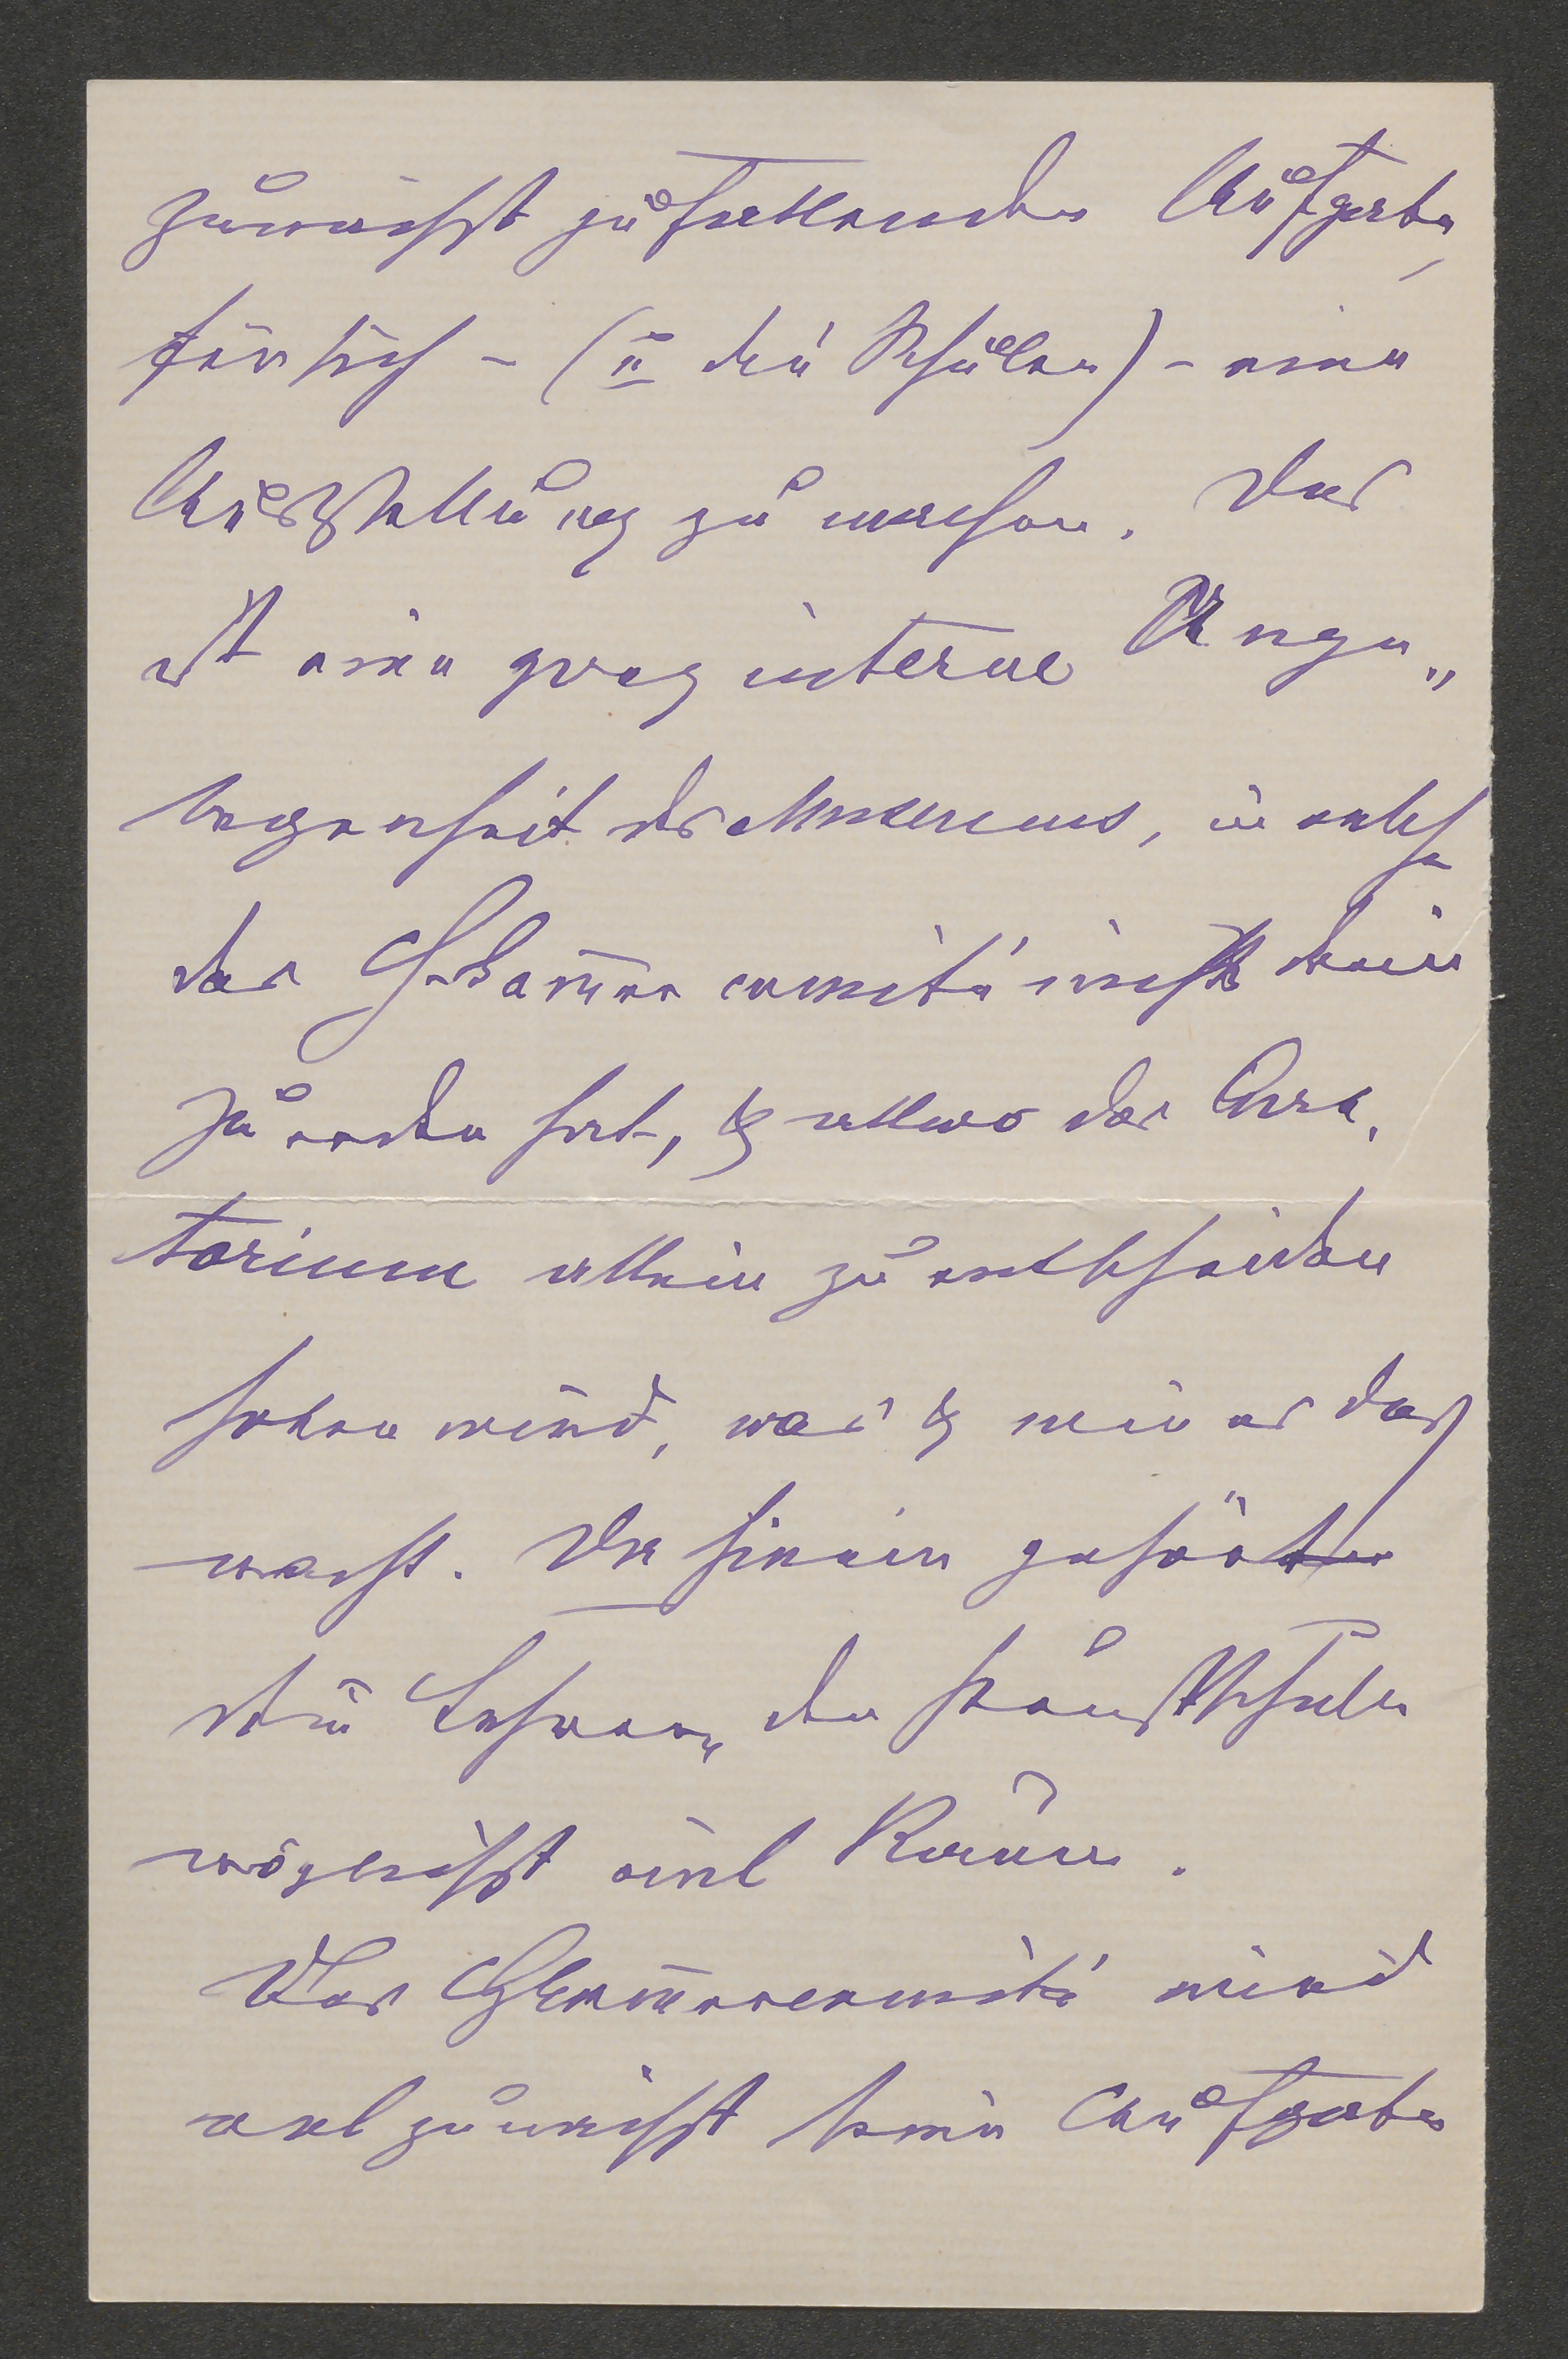 zunächst zufallenden Aufgabe,
für sich – (u die Schüler) – eine
Ausstellung zu machen. Das
ist eine ganz interne Ange„
legenheit des Museums, in welche
das comité nicht drein
zu reden hat, & allwo das Cura„
torium allein zu entscheiden
haben wird, was & wie er das
macht. Da hinein gehört
die Lehrer, der Kunstschule
möglichst viel Raum.
Das comité wird
wol zunächst keine Aufgabe